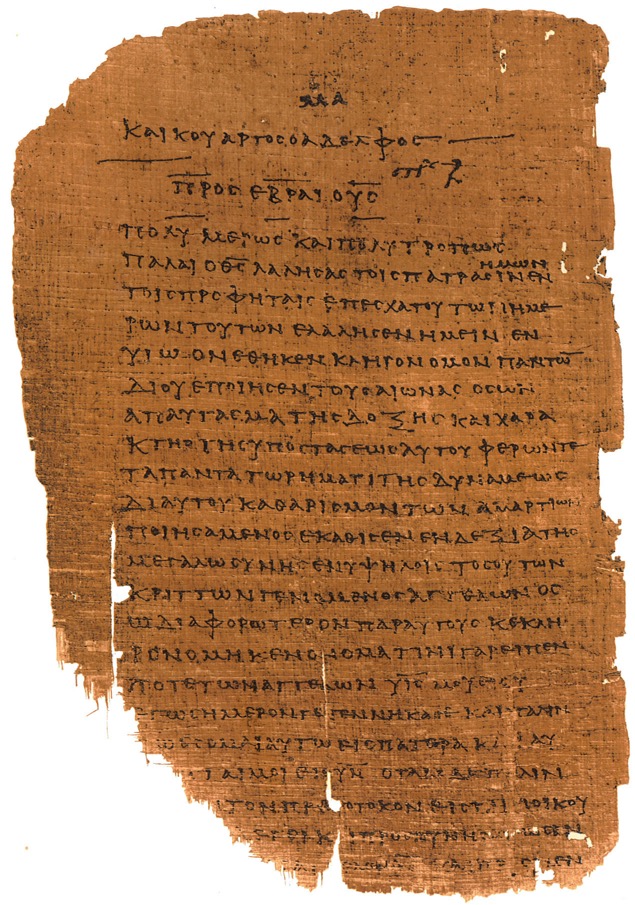 ΚΑΙ ΚΟΥΑΡΤΟϹ Ο ΑΔΕΛΦΟϹ
ΠΡΟϹ ΕΒΡΑΙΟΥϹ
ΠΟΛΥΜΕΡΩϹ ΚΑΙ ΠΟΛΥΤΡΟΠΩϹ
ΗΜΩΝ
ΠΑΛΑΙ Ο Θ̅Ϲ̅ ΛΑΛΗϹΑϹ ΤΟΙϹ ΠΑΤΡΑϹΙΝ ΕΝ
ΤΟΙϹ ΠΡΟΦΗΤΑΙϹ ΕΠ ΕϹΧΑΤΟΥ ΤΩΝ ΗΜΕ
ΡΩΝ ΤΟΥΤΩΝ ΕΛΑΛΗϹΕΝ ΗΜΕΙΝ ΕΝ
ΥΙΩ ΟΝ ΕΘΗΚΕΝ ΚΛΗΡΟΝΟΜΟΝ ΠΑΝΤΩ̅
ΔΙ ΟΥ ΕΠΟΙΗϹΕΝ ΤΟΥϹ ΑΙΩΝΑϹ ΟϹ ΩΝ
ΑΠΑΥΓΑϹΜΑ ΤΗϹ ΔΟΞΗϹ ΚΑΙ ΧΑΡΑ
ΚΤΗΡ ΤΗϹ ΥΠΟϹΤΑϹΕΩϹ ΑΥΤΟΥ ΦΕΡΩΝ ΤΕ
ΤΑ ΠΑΝΤΑ ΤΩ ΡΗΜΑΤΙ ΤΗϹ ΔΥΝΑΜΕΩϹ
ΔΙ ΑΥΤΟΥ ΚΑΘΑΡΙϹΜΟΝ ΤΩΝ ΑΜΑΡΤΙΩΝ
ΠΟΙΗϹΑΜΕΝΟϹ ΕΚΑΘΙϹΕΝ ΕΝ ΔΕΞΙΑ ΤΗϹ
ΜΕΓΑΛΩϹΥΝΗϹ ΕΝ ΥΨΗΛΟΙϹ ΤΟϹΟΥΤΩΝ
ΚΡΙΤΤΩΝ ΓΕΝΟΜΕΝΟϹ ΑΓΓΕΛΩΝ ΟϹ
Ω ΔΙΑΦΟΡΩΤΕΡΟΝ ΠΑΡ ΑΥΤΟΥϹ ΚΕΚΛΗ
ΡΟΝΟΜΗΚΕΝ ΟΝΟΜΑ ΤΙΝΙ ΓΑΡ ΕΙΠΕΝ
ΠΟΤΕ ΤΩΝ ΑΓΓΕΛΩΝ Υ̅Ϲ̅ ΜΟΥ ΕΙ ϹΥ
ΕΓΩ ϹΗΜΕΡΟΝ ΓΕΓΕΝΝΗΚΑ ϹΕ ΚΑΙ ΠΑΛΙΝ
ΕϹΟΜΑΙ ΑΥΤΩ ΕΙϹ ΠΑΤΕΡΑ ΚΑΙ ΑΥ
ΤΑΙ ΜΟΙ ΕΙϹ ΥΝ ΟΤΑΝ ΔΕ ΠΑΛΙΝ
ΤΟΝ ΠΡΩΤΟΤΟΚΟΝ ΕΙϹ ΤΗΝ ΟΙΚΟΥ